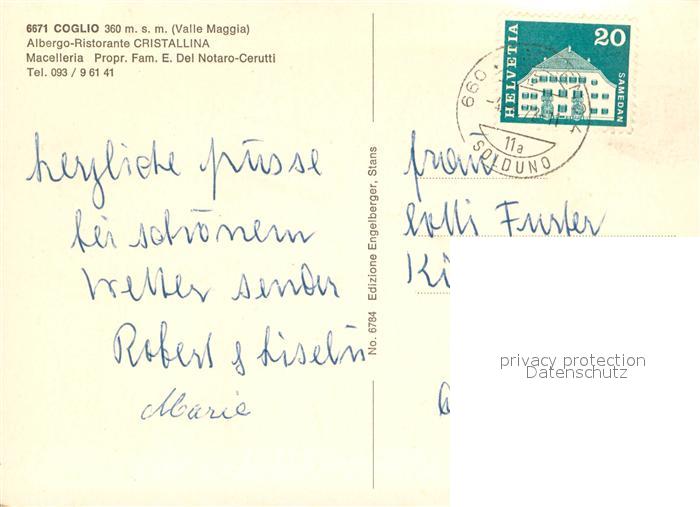 6671 COGLIO 360 m. s. m. (Valle Maggia)
Albergo-Ristorante CRISTALLINA
Macelleria Propr. Fam. E. Del Notaro-Cerutti
Tel. 093 / 9 61 41
herzliche Grüsse
bei schönem
Wetter sender
Robert & Liseli
Marie
No. 6784 Edizione Engelberger, Stans
HELVETIA
20
SAMEDAN
660
11a
SOLDUNO
Frau
Lotti Furter
Kü
privacy protection
Datenschutz